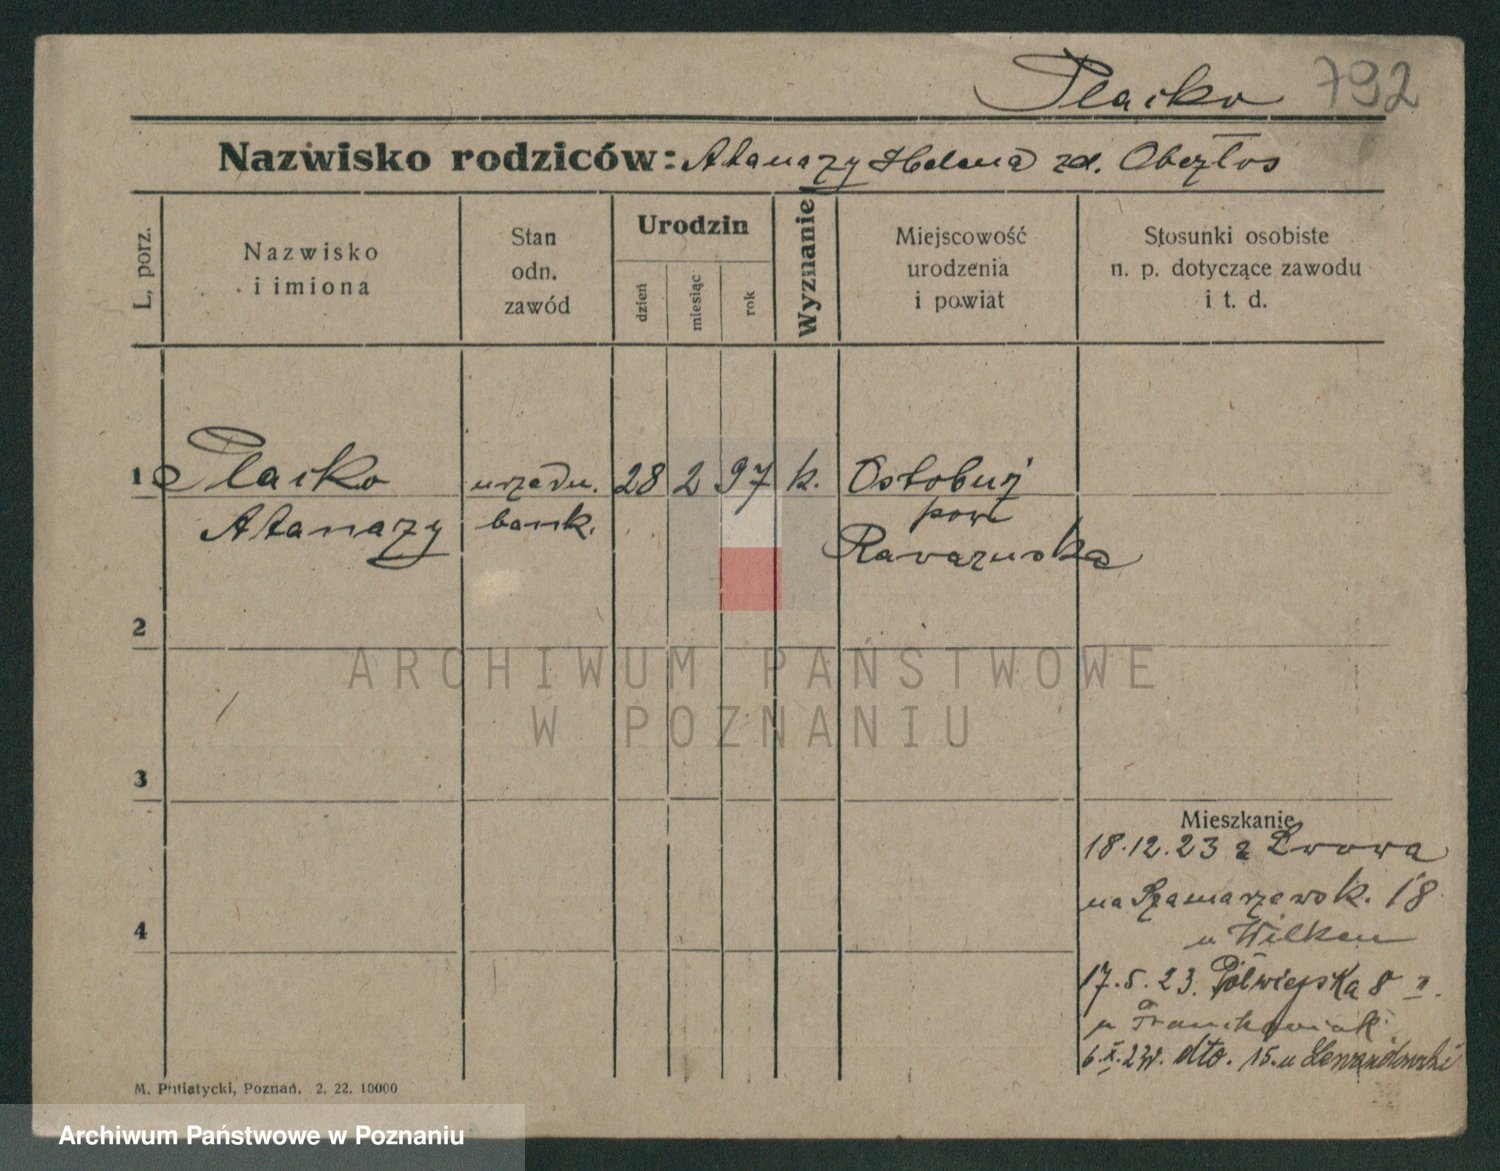 Placko 792
Nazwisko rodziców: Atanazy Helena zd. Obezłos
L. porz.
Nazwisko
i imiona
Stan
odn.
zawód
Urodzin
dzień
miesiąc
rok
Wyznanie
Miejscowość
urodzenia
i powiat
Stosunki osobiste
n. p. dotyczące zawodu
i t. d.
1 Placko urzędn. 28 2 97 k. Ostobuż
Atanazy bank. pow
Ravaruska
2
3
4
Mieszkanie
18.12.23 z Lwowa
na Szamarzewsk. 18
u Wilken
17.5.23. Półwiejska 8 II.
u Franckowiak
6.X.24. dto. 15. u Lewandowski
M. Putiatycki, Poznań. 2. 22. 10000
ARCHIWUM PAŃSTWOWE
W POZNANIU
Archiwum Państwowe w Poznaniu